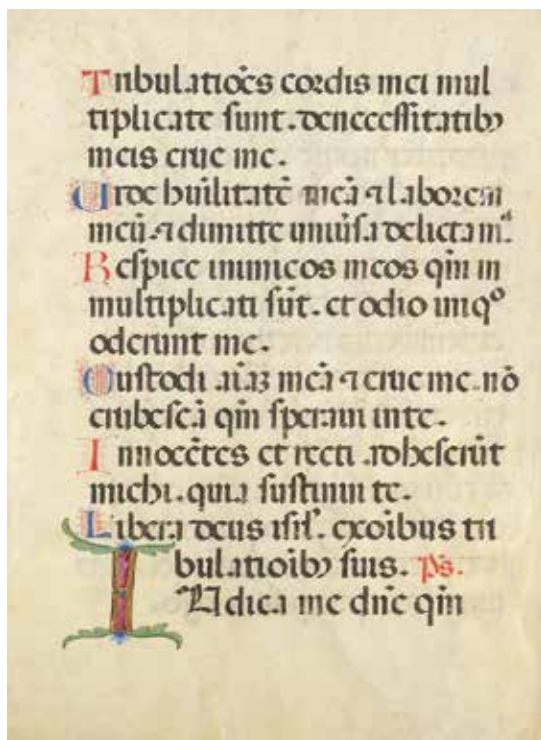 Tribulatiões cordis mei mul
tiplicate sunt. de necessitatibꝫ
meis erue me.
Uide huilitatē meā ⁊ laborem
meū. ⁊ dimitte uniūsa delicta mᵃ.
Respice inimicos meos qm̄ m
multiplicati sūt. et odio iniqº
oderunt me.
Custodi aiaꝫ meā ⁊ erue me. nō
erubescā qm̄ speraui in te.
Innocētes et recti adheserūt
michi. quia sustinui te.
Libera deus isrl̄. ex oībus tri
bulatioībꝫ suis. ps̄.
Iudica me dn̄e qm̄